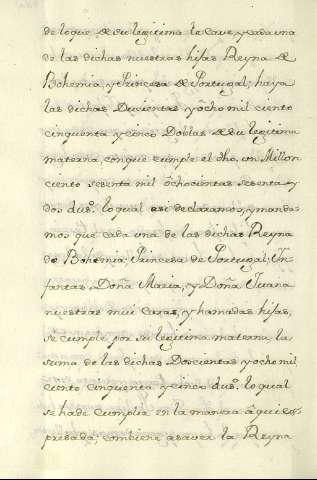 de loque de su legitima le cave, y cada una
de las dichas nuestras hijas Reyna de
Bohemia, y Princesa de Portugal; haya
las dichas Ducientas y ocho mil ciento
cinquenta y cinco Doblas de su legitima
materna, conque cumple el dho. un Millon
ciento sesenta mil ôchocientas sesenta y
dos dus.º lo qual asi declaramos, y manda-
mos que cada una de las dichas Reyna
de Bohemia, Princesa de Portugal; In-
fantas, Doña Maria, y Doña Juana
nuestras mui Caras, y hamadas hijas,
se cumple por su legitima materna la
suma de las dichas Doscientas y ocho mil
ciento cinquenta y cinco dus.º lo qual
se ha de Cumplir en la manera âqui es-
presada; combiene a saver la Reyna